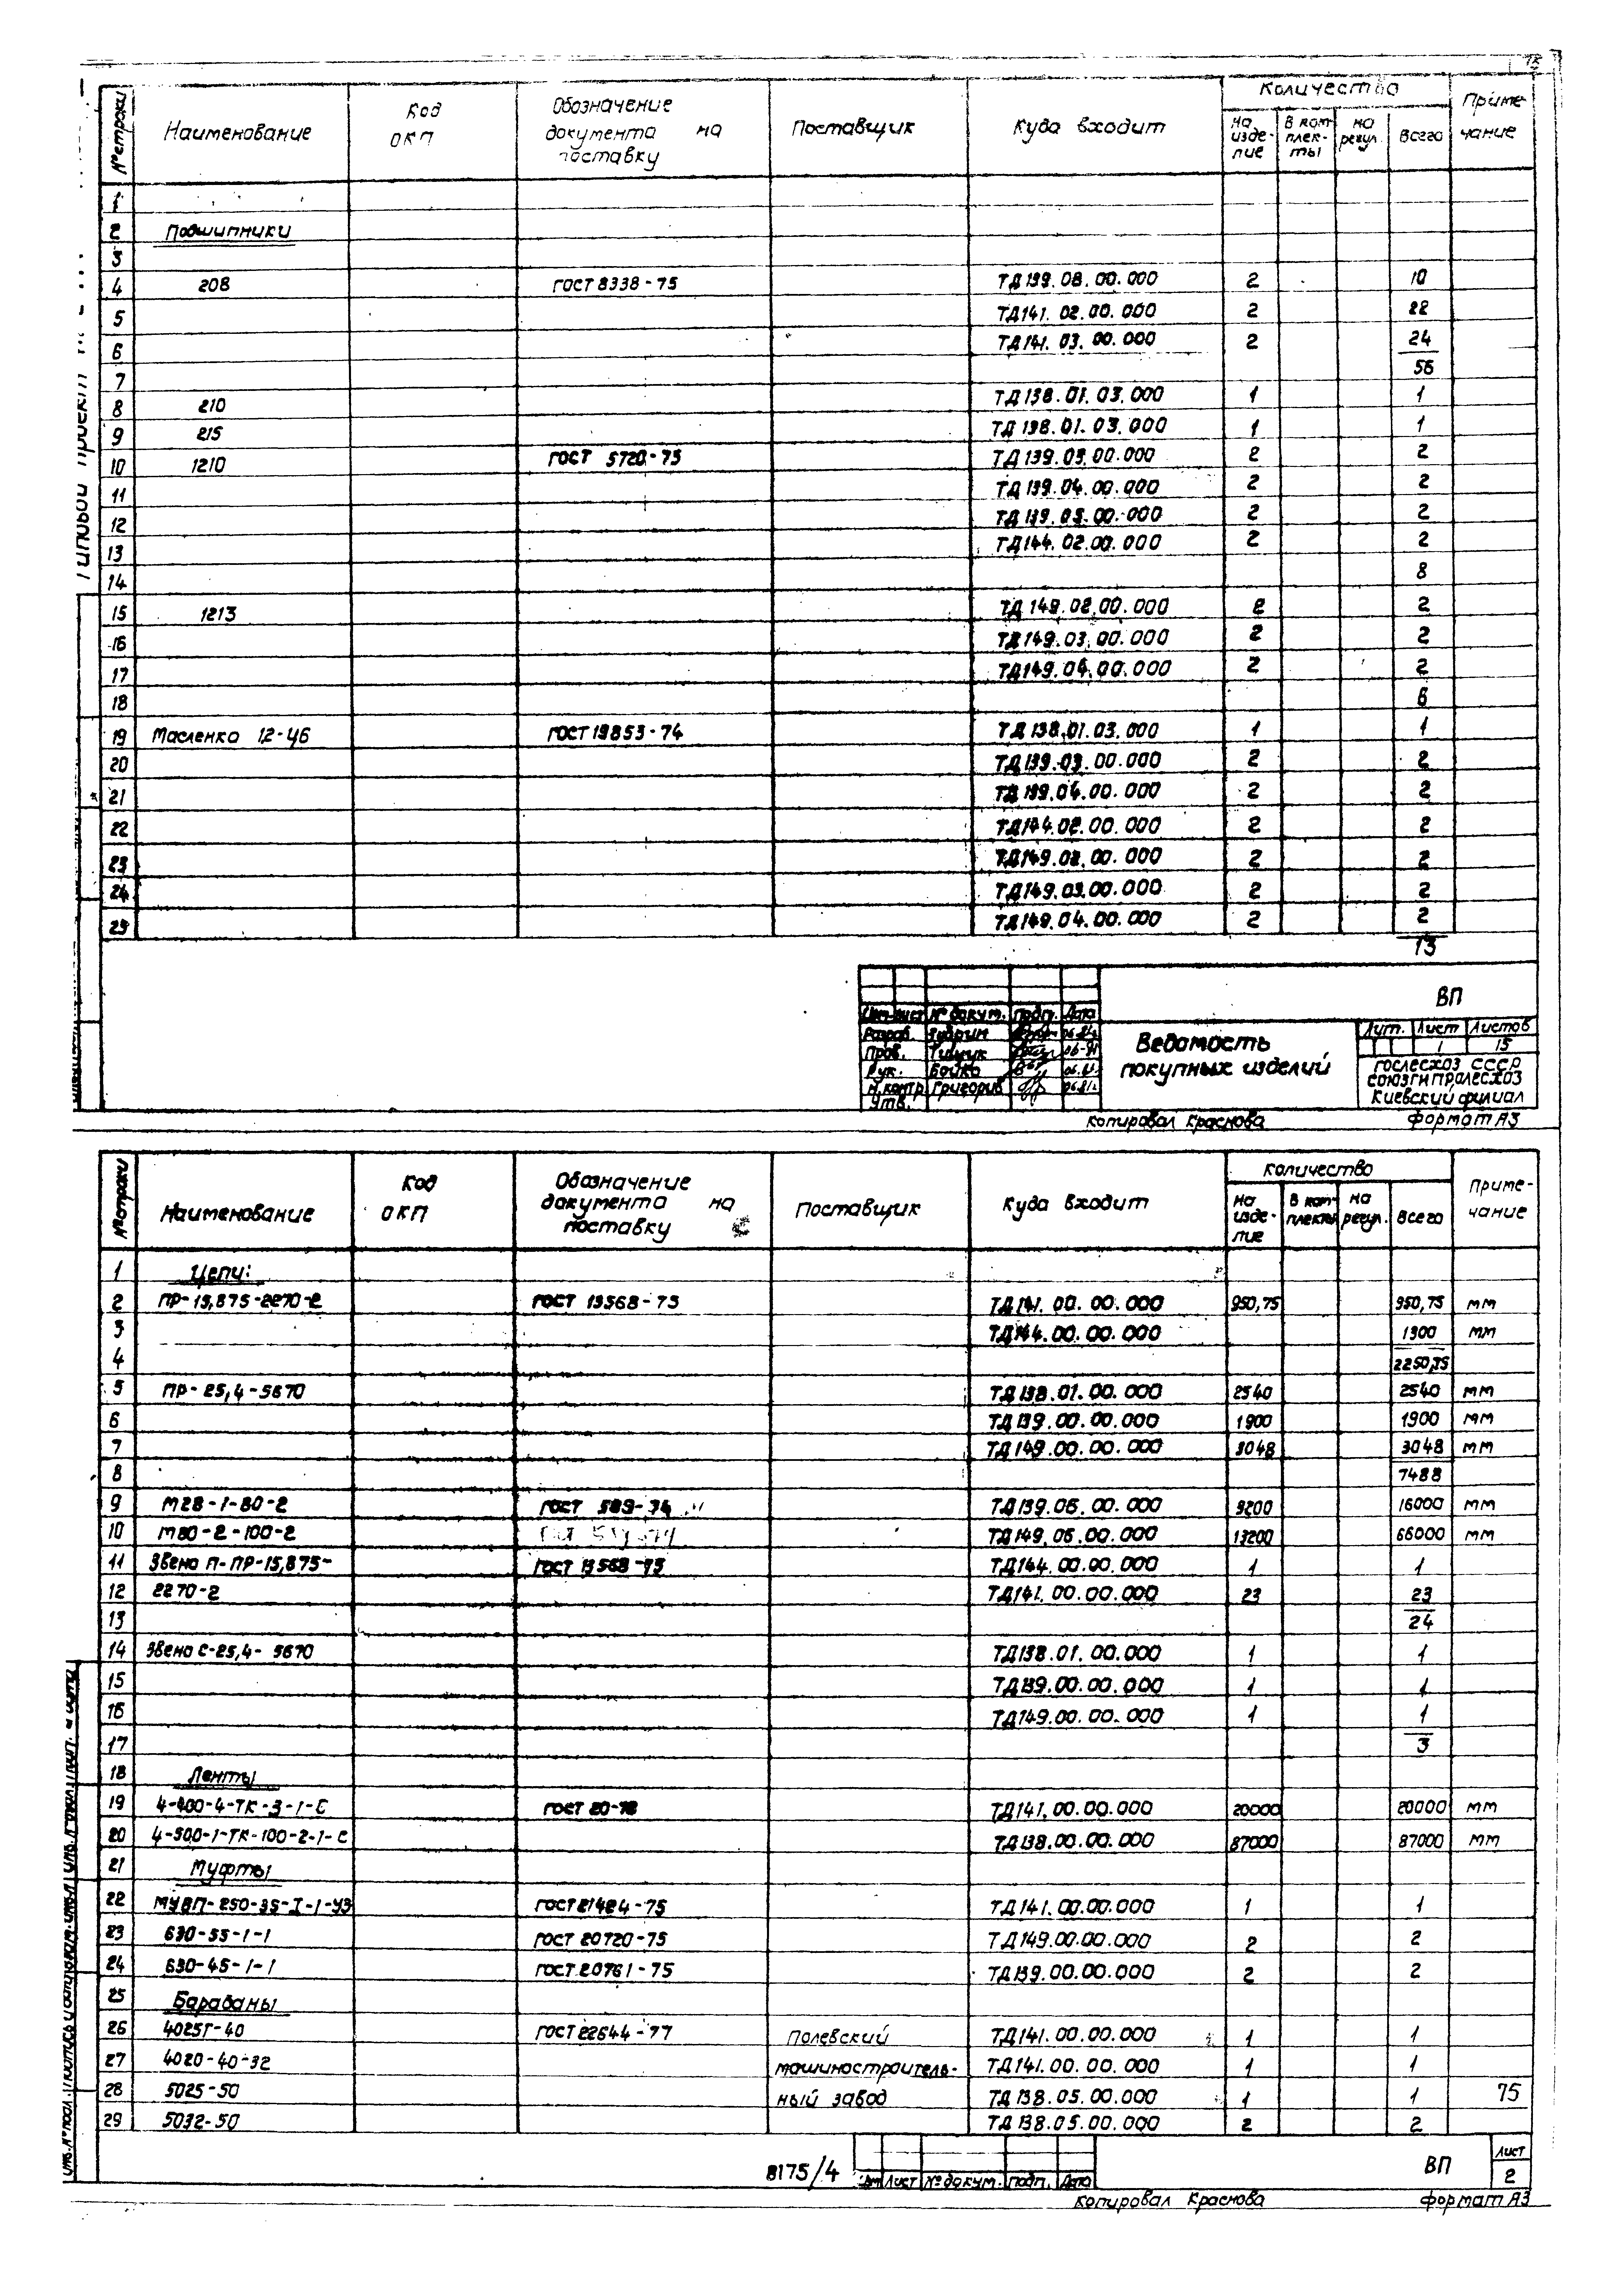 Количество
№ строки Наименование Код ОКП Обозначение документа на поставку Поставщик Куда входит На изделие В комплекты на регул. Всего Примечание
1
2 Подшипники
3
4 208 ГОСТ 8338-75 ТД139.08.00.000 2 10
5 ТД141.02.00.000 2 22
6 ТД141.03.00.000 2 24
7 56
8 210 ТД138.01.03.000 1 1
9 215 ТД138.01.03.000 1 1
10 1210 ГОСТ 5720-75 ТД139.03.00.000 2 2
11 ТД139.04.00.000 2 2
12 ТД139.05.00.000 2 2
13 ТД144.02.00.000 2 2
14 8
15 1213 ТД149.02.00.000 2 2
16 ТД149.03.00.000 2 2
17 ТД149.04.00.000 2 2
18 6
19 Масленка 1.2-Ц6 ГОСТ 19853-74 ТД138.01.03.000 1 1
20 ТД139.03.00.000 2 2
21 ТД139.04.00.000 2 2
22 ТД144.02.00.000 2 2
23 ТД149.02.00.000 2 2
24 ТД149.03.00.000 2 2
25 ТД149.04.00.000 2 2
13
ВП
Изм. лист № докум. подп. Дата
Разраб.
Пров.
Рук. Бойко
Н.контр. Григорив
Утв.
Ведомость
покупных изделий
Лит. Лист Листов
1 15
Гослесхоз СССР
Союзгипролесхоз
Киевский филиал
Копировал Краснова Формат А3
Количество
№ строки Наименование Код ОКП Обозначение документа на поставку Поставщик Куда входит На изделие В комплекты на регул. Всего Примечание
1 Цепи:
2 ПР-15,875-2270-2 ГОСТ 13568-75 ТД141.00.00.000 950,75 950,75 мм
3 ТД144.00.00.000 1300 мм
4 2250,75
5 ПР-25,4-5670 ТД138.01.00.000 2540 2540 мм
6 ТД139.00.00.000 1900 1900 мм
7 ТД149.00.00.000 3048 3048 мм
8 7488
9 М28-1-80-2 ГОСТ 589-74 ТД139.06.00.000 9200 16000 мм
10 М80-2-100-2 ТД149.06.00.000 13200 66000 мм
11 Звено П-ПР-15,875- ГОСТ 13568-75 ТД144.00.00.000 1 1
12 2270-2 ТД141.00.00.000 23 23
13 24
14 Звено С-25,4-5670 ТД138.01.00.000 1 1
15 ТД139.00.00.000 1 1
16 ТД149.00.00.000 1 1
17 3
18 Ленты
19 4-400-4-ТК-3-1-С ГОСТ 20-76 ТД141.00.00.000 20000 20000 мм
20 4-500-1-ТК-100-2-1-С ТД138.00.00.000 87000 87000 мм
21 Муфты
22 МУВП-250-35-I-1-У3 ГОСТ 21424-75 ТД141.00.00.000 1 1
23 630-55-1-1 ГОСТ 20720-75 ТД149.00.00.000 2 2
24 630-45-1-1 ГОСТ 20761-75 ТД139.00.00.000 2 2
25 Барабаны
26 4025Г-40 ГОСТ 22644-77 Полевский ТД141.00.00.000 1 1
27 4020-40-32 машиностроитель- ТД141.00.00.000 1 1
28 5025-50 ный завод ТД138.05.00.000 1 1 75
29 5032-50 ТД138.05.00.000 2 2
8175/4
Изм Лист № докум. Подп. Дата
ВП
Лист
2
Копировал Краснова Формат А3